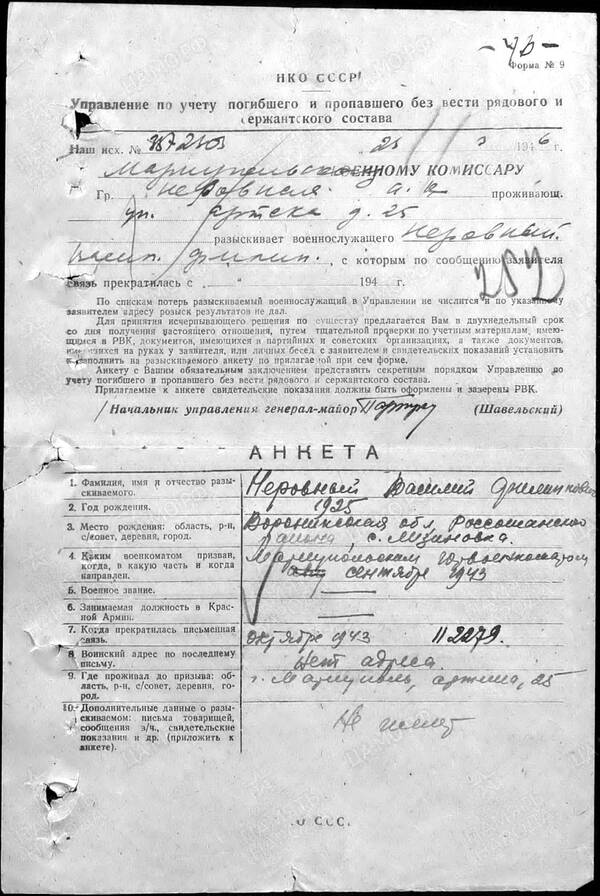 Форма № 9
НКО СССР
Управление по учету погибшего и пропавшего без вести рядового и
сержантского состава
Наш исх. № 25 194 6 г.
ВОЕННОМУ КОМИССАРУ
Гр. проживающ.
ул. д. 25
разыскивает военнослужащего Неровный
Васил. Филип. , с которым по сообщению заявителя
связь прекратилась с „ " 194 г.
По спискам потерь разыскиваемый военнослужащий в Управлении не числится и по указанному
заявителем адресу розыск результатов не дал.
Для принятия исчерпывающего решения по существу предлагается Вам в двухнедельный срок
со дня получения настоящего отношения, путем тщательной проверки по учетным материалам, имею-
щимся в РВК, документов, имеющихся в партийных и советских организациях, а также документов,
имеющихся на руках у заявителя, или личных бесед с заявителем и свидетельских показаний установить
и заполнить на разыскиваемого анкету по прилагаемой при сем форме.
Анкету с Вашим обязательным заключением представить секретным порядком Управлению по
учету погибшего и пропавшего без вести рядового и сержантского состава.
Прилагаемые к анкете свидетельские показания должны быть оформлены и заверены РВК.
Начальник управления генерал-майор (Шавельский)
АНКЕТА
1. Фамилия, имя и отчество разы-
скиваемого.
Неровный Василий Филиппович
2. Год рождения.
1925
3. Место рождения: область, р-н,
с/совет, деревня, город.
обл, Россошанского
района, с.
4. Каким военкоматом призван,
когда, в какую часть и когда
направлен.
Мариупольским горвоенкоматом
сентябре 1943
5. Военное звание.
6. Занимаемая должность в Крас-
ной Армии.
7. Когда прекратилась письменная
связь.
октябре 1943 п 2279.
8. Воинский адрес по последнему
письму.
Нет адреса
9. Где проживал до призыва: об-
ласть, р-н, с/совет, деревня, го-
род.
г. Мариуполь, 25
10. Дополнительные данные о разы-
скиваемом: письма товарищей,
сообщения з/ч., свидетельские
показания и др. (приложить к
анкете).
Не имеет
НКО СССР